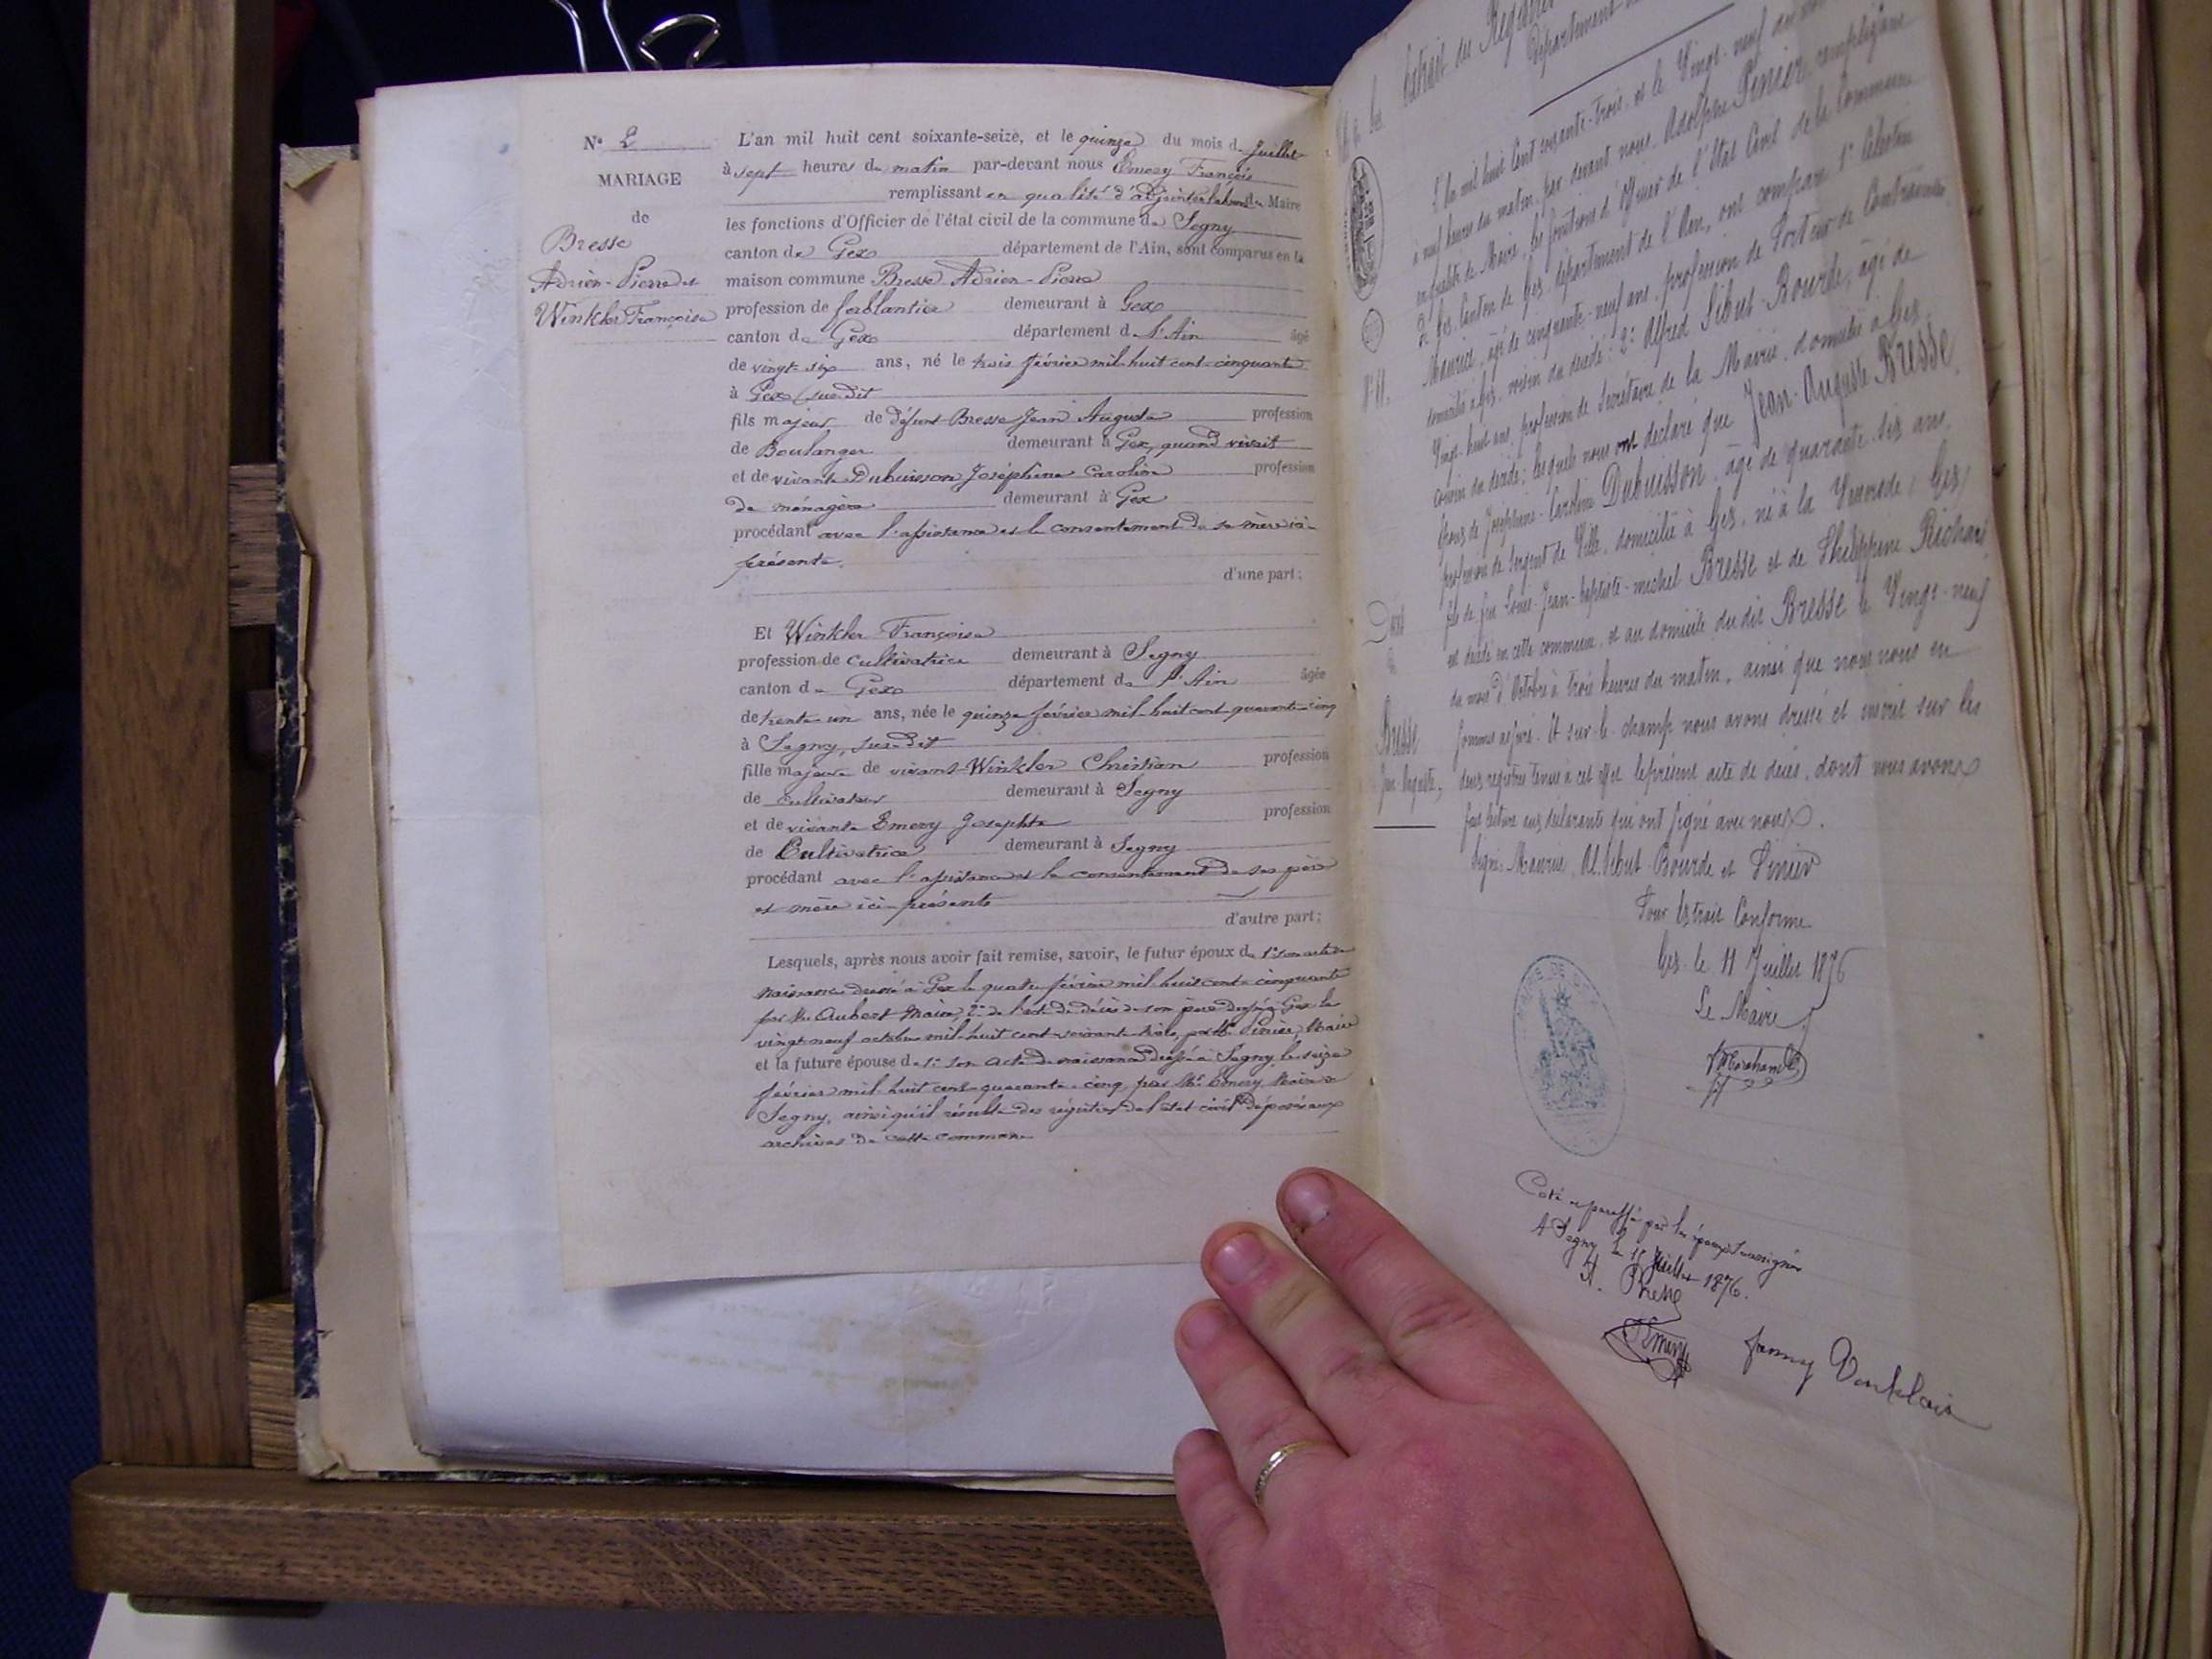 N° 2
MARIAGE
de
Bresse
Adrien-Pierre et
Winkler Françoise
L'an mil huit cent soixante-seize, et le quinze du mois de Juillet
à sept heures du matin par-devant nous Emery François
remplissant en qualité d'adjoint Maire
les fonctions d'Officier de l'état civil de la commune de Segny
canton de Gex département de l'Ain, sont comparus en la
maison commune Bresse Adrien-Pierre
profession de ferblantier demeurant à Gex
canton de Gex département de l'Ain âgé
de vingt-six ans, né le trois février mil-huit cent-cinquante
à Gex susdit
fils majeur de défunt Bresse Jean Auguste profession
de Boulanger demeurant à Gex, quand vivait
et de vivante Dubuisson Joséphine Caroline profession
de ménagère demeurant à Gex
procédant avec l'assistance et le consentement de sa mère ici-
présente.
d'une part;
Et Winkler Françoise
profession de cultivatrice demeurant à Segny
canton de Gex département de l'Ain âgée
de trente-un ans, née le quinze février mil-huit cent-quarante-cinq
à Segny, sus-dit
fille majeure de vivant Winkler Christian profession
de cultivateur demeurant à Segny
et de vivante Emery Josephte profession
de Cultivatrice demeurant à Segny
procédant avec l'assistance et le consentement de ses père
et mère ici-présents
d'autre part;
Lesquels, après nous avoir fait remise, savoir, le futur époux de 1° son acte de
naissance dressé à Gex le quatre février mil-huit-cent-cinquante
par Mr Aubert Maire, 2° de l'acte de décès de son père dressé à Gex le
vingt-neuf octobre mil-huit cent-soixante-trois, par Mr Pinier, Maire
et la future épouse de 1° son acte de naissance dressé à Segny le seize
février mil-huit cent-quarante-cinq par Mr Emery Maire de
Segny, ainsi qu'il résulte des registres de l'état-civil déposés aux
archives de cette commune
Extrait des Registres
Département
L'an mil huit Cent soixante-trois, et le Vingt-neuf du mois
à neuf heures du matin, par devant nous, Adolphe Pinier, remplissant
en qualité de Maire, les fonctions d'Officier de l'Etat Civil de la Commune
de Gex, Canton de Gex, département de l'Ain, ont comparu 1°
Maurice, âgé de cinquante-neuf ans, profession de Porteur de Contraintes
domicilié à Gex, voisin du décédé; 2° Alfred Sibut-Bourde, âgé de
Vingt-huit ans, profession de Secrétaire de la Mairie, domicilié à Gex,
cousin du décédé; lesquels nous ont déclaré que Jean-Auguste Bresse,
époux de Joséphine-Caroline Dubuisson, âgé de quarante-six ans,
profession de Sergent de Ville, domicilié à Gex, né à la
fils de feu Louis-Jean-baptiste-michel Bresse et de Richard
est décédé en cette commune, et au domicile du dit Bresse le Vingt-neuf
du mois d'Octobre à trois heures du matin, ainsi que nous nous en
sommes assuré. Et sur-le-champ nous avons dressé et inscrit sur les
deux registres tenus à cet effet le présent acte de décès, dont nous avons
fait lecture aux déclarants qui ont signé avec nous.
Signé: Maurice, Al. Sibut-Bourde et Pinier
N° 61.
Décès
de
Bresse
Jean-Auguste,
Pour Extrait Conforme
Gex le 11 Juillet 1876
Le Maire
MAIRIE DE GEX
Coté et paraffé par les époux soussignés
A Segny le 15 Juillet 1876.
A. Bresse
Emery
fanny Vinklair